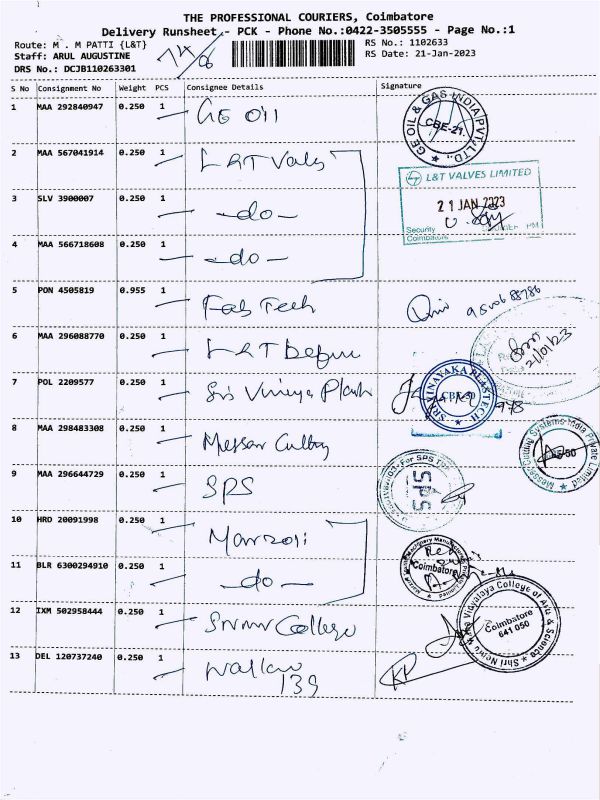 THE PROFESSIONAL COURIERS, Coimbatore
Delivery Runsheet - PCK - Phone No.:0422-3505555 - Page No.:1
Route: M . M PATTI {L&T}
RS No.: 1102633
Staff: ARUL AUGUSTINE
RS Date: 21-Jan-2023
DRS No.: DCJB110263301
74/06
S No Consignment No Weight PCS Consignee Details Signature
1 MAA 292840947 0.250 1 GE Oil
GE OIL & GAS INDIA PVT. LTD.,
CBE-21.
2 MAA 567041914 0.250 1 L&T Valv
L&T VALVES LIMITED
21 JAN 2023
Security
Coimbatore
3 SLV 3900007 0.250 1 -do-
4 MAA 566718608 0.250 1 -do-
5 PON 4505819 0.955 1 Fab Tech
6 MAA 296088770 0.250 1 L&T Defen
21/01/23
7 POL 2209577 0.250 1 Sri Vinaya Plash
SRI VINAYAKA PLASTECH
8 MAA 298483308 0.250 1 Messar Cutting
Messer Cutting Systems India Private Limited
9 MAA 296644729 0.250 1 SPS
For SPS
SPS
10 HRO 20091998 0.250 1 Marzoli
11 BLR 6300294910 0.250 1 -do-
Coimbatore
12 IXM 502958444 0.250 1 SNMV College
Shri Nehru Maha Vidyalaya College of Arts & Science
Coimbatore
641 050
13 DEL 120737240 0.250 1 Wallaw
139